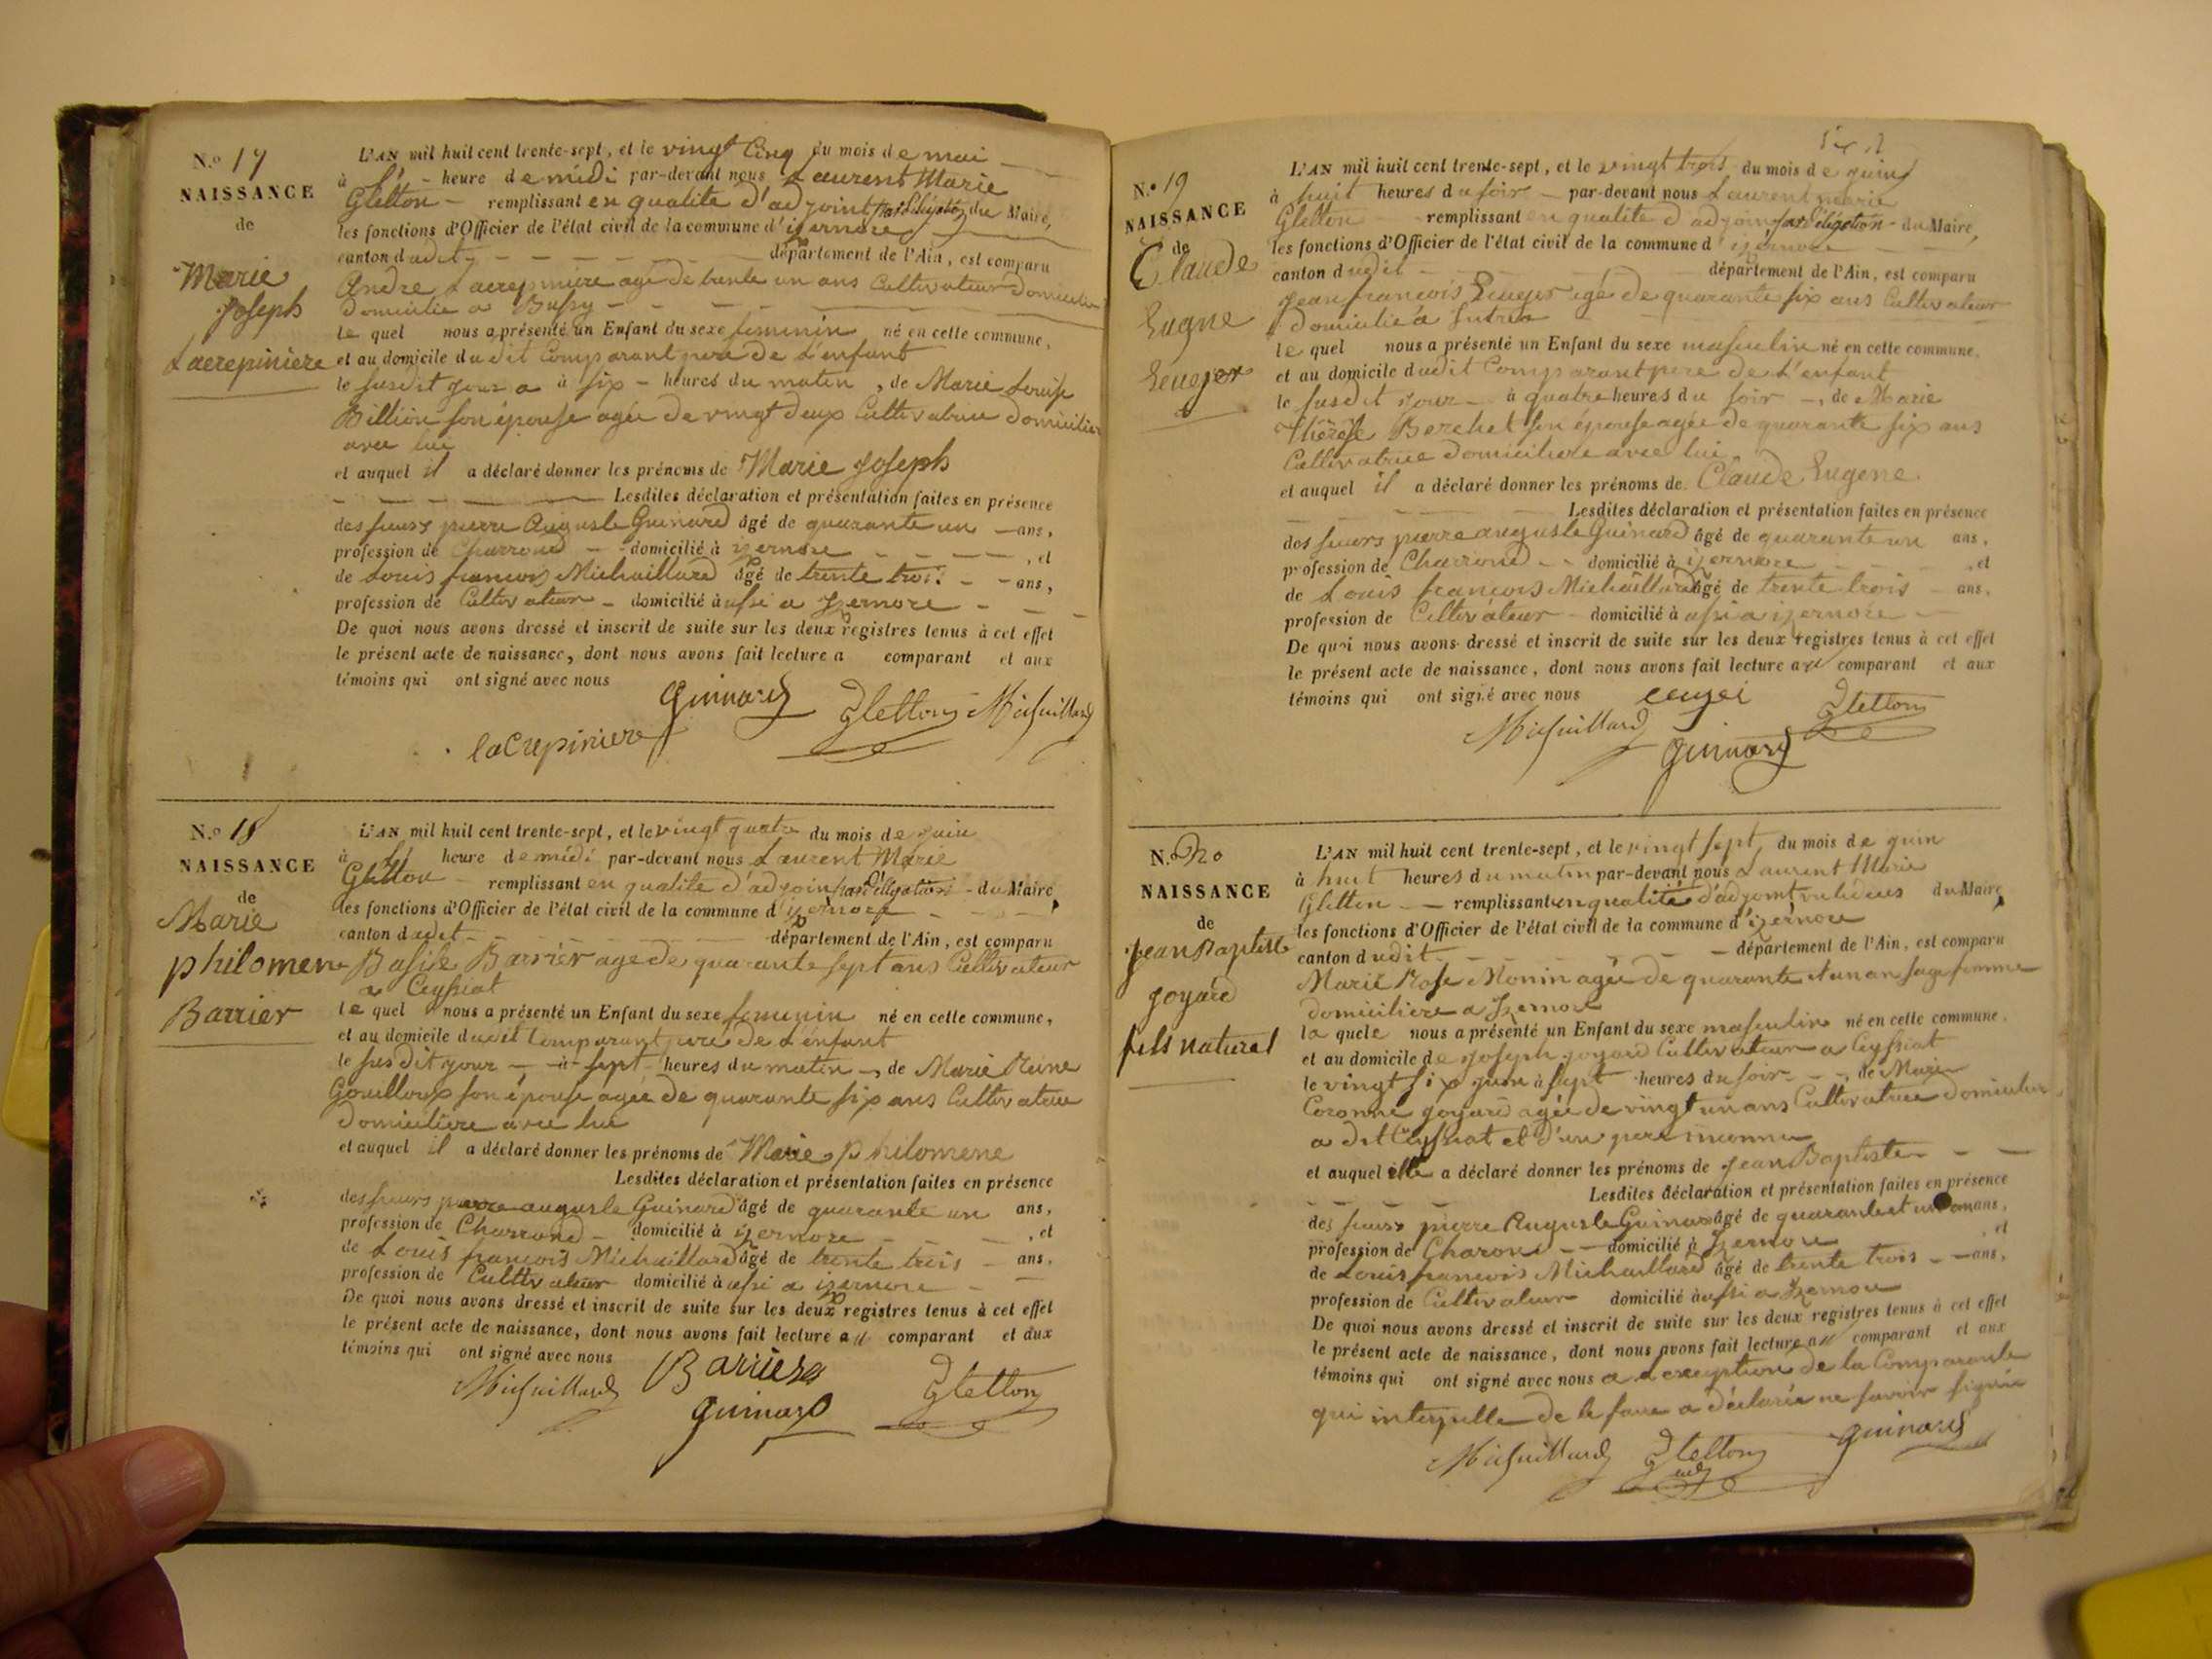 N.o 17
NAISSANCE
de
Marie
Joseph
Lacrepiniere
L'AN mil huit cent trente-sept, et le vingt Cinq du mois de mai
à heure de midi par-devant nous Laurent Marie
Gletton remplissant en qualité d'adjoint par Délégation du Maire,
les fonctions d'Officier de l'état civil de la commune d'izernore
canton dudit département de l'Ain, est comparu
Andre Lacrepiniere agé de trente un ans Cultivateur
Domicilié a Bussy
le quel nous a présenté un Enfant du sexe feminin né en cette commune,
et au domicile dudit Comparant pere de L'enfant
le susdit jour a à six heures du matin, de Marie Louise
Billion son épouse agée de vingt deux Cultivatrice domicilier
avec lui
et auquel il a déclaré donner les prénoms de Marie Joseph
Lesdites déclaration et présentation faites en présence
des sieurs pierre Auguste Guinard âgé de quarante un ans,
profession de Charrond domicilié à izernore , et
de Louis francois Michaillard âgé de trente trois ans,
profession de Cultivateur domicilié à ausi a Izernore
De quoi nous avons dressé et inscrit de suite sur les deux registres tenus à cet effet
le présent acte de naissance, dont nous avons fait lecture a comparant et aux
témoins qui ont signé avec nous
Guinard Gletton Michaillard
lacrepiniere
N.o 18
NAISSANCE
de
Marie
philomene
Barrier
L'AN mil huit cent trente-sept, et le vingt quatre du mois de juin
à heure de midi par-devant nous Laurent Marie
Gletton remplissant en qualité d'adjoin par Délégation du Maire,
les fonctions d'Officier de l'état civil de la commune d'izernore
canton dudit département de l'Ain, est comparu
Basile Barrier age de quarante sept ans Cultivateur
a Ceyssiat
le quel nous a présenté un Enfant du sexe femenin né en cette commune,
et au domicile dudit Comparant pere de L'enfant
le susdit jour à sept heures du matin, de Marie Reine
Gouilloux son épouse agée de quarante six ans Cultivatrice
domiciliere avec lui
et auquel il a déclaré donner les prénoms de Marie philomene
Lesdites déclaration et présentation faites en présence
des sieurs pierre auguste Guinard âgé de quarante un ans,
profession de Charrond domicilié à izernore , et
de Louis francois Michaillard âgé de trente trois ans,
profession de Cultivateur domicilié à ausi a izernore
De quoi nous avons dressé et inscrit de suite sur les deux registres tenus à cet effet
le présent acte de naissance, dont nous avons fait lecture au comparant et aux
témoins qui ont signé avec nous
Michaillard Barrier
Guinard Gletton
N.o 19
NAISSANCE
de
Claude
Eugne
L'AN mil huit cent trente-sept, et le vingt trois du mois de juin
à huit heures du soir par-devant nous Laurent marie
Gletton remplissant en qualité d'adjoin par Délégation du Maire,
les fonctions d'Officier de l'état civil de la commune d'izernore
canton dudit département de l'Ain, est comparu
Jean francois agé de quarante six ans Cultivateur
domicilié a
le quel nous a présenté un Enfant du sexe masculin né en cette commune,
et au domicile dudit Comparant pere de L'enfant
le susdit jour à quatre heures du soir, de Marie
Thérèse Berchet son épouse agée de quarante six ans
Cultivatrice domiciliere avec lui
et auquel il a déclaré donner les prénoms de Claude Eugene
Lesdites déclaration et présentation faites en présence
des sieurs pierre auguste Guinard âgé de quarante un ans,
profession de Charrond domicilié à izernore , et
de Louis francois Michaillard âgé de trente trois ans,
profession de Cultivateur domicilié à ausi a izernore
De quoi nous avons dressé et inscrit de suite sur les deux registres tenus à cet effet
le présent acte de naissance, dont nous avons fait lecture au comparant et aux
témoins qui ont signé avec nous
Michaillard Gletton
Guinard
N.o 20
NAISSANCE
de
Jean Baptiste
Goyard
fils naturel
L'AN mil huit cent trente-sept, et le vingt sept du mois de juin
à huit heures du matin par-devant nous Laurent Marie
Gletton remplissant en qualité d'adjoint du Maire,
les fonctions d'Officier de l'état civil de la commune d'izernore
canton dudit département de l'Ain, est comparu
Marie Rose Monin agée de quarante et un an sage femme
domiciliere a Izernore
la quele nous a présenté un Enfant du sexe masculin né en cette commune,
et au domicile de Joseph goyard Cultivateur a Ceyssiat
le vingt six juin à sept heures du soir, de Marie
Coronne goyard agée de vingt un ans Cultivatrice domiciliere
a dit Ceyssiat et d'un pere inconnu
et auquel elle a déclaré donner les prénoms de Jean Baptiste
Lesdites déclaration et présentation faites en présence
des sieurs pierre Auguste Guinard âgé de quarante et un ans,
profession de Charond domicilié à Izernore , et
de Louis francois Michaillard âgé de trente trois ans,
profession de Cultivateur domicilié à ausi a Izernore
De quoi nous avons dressé et inscrit de suite sur les deux registres tenus à cet effet
le présent acte de naissance, dont nous avons fait lecture au comparant et aux
témoins qui ont signé avec nous a L'exeption de la Comparante
qui interpelle de le faire a déclarée ne savoir signer
Michaillard Gletton Guinard